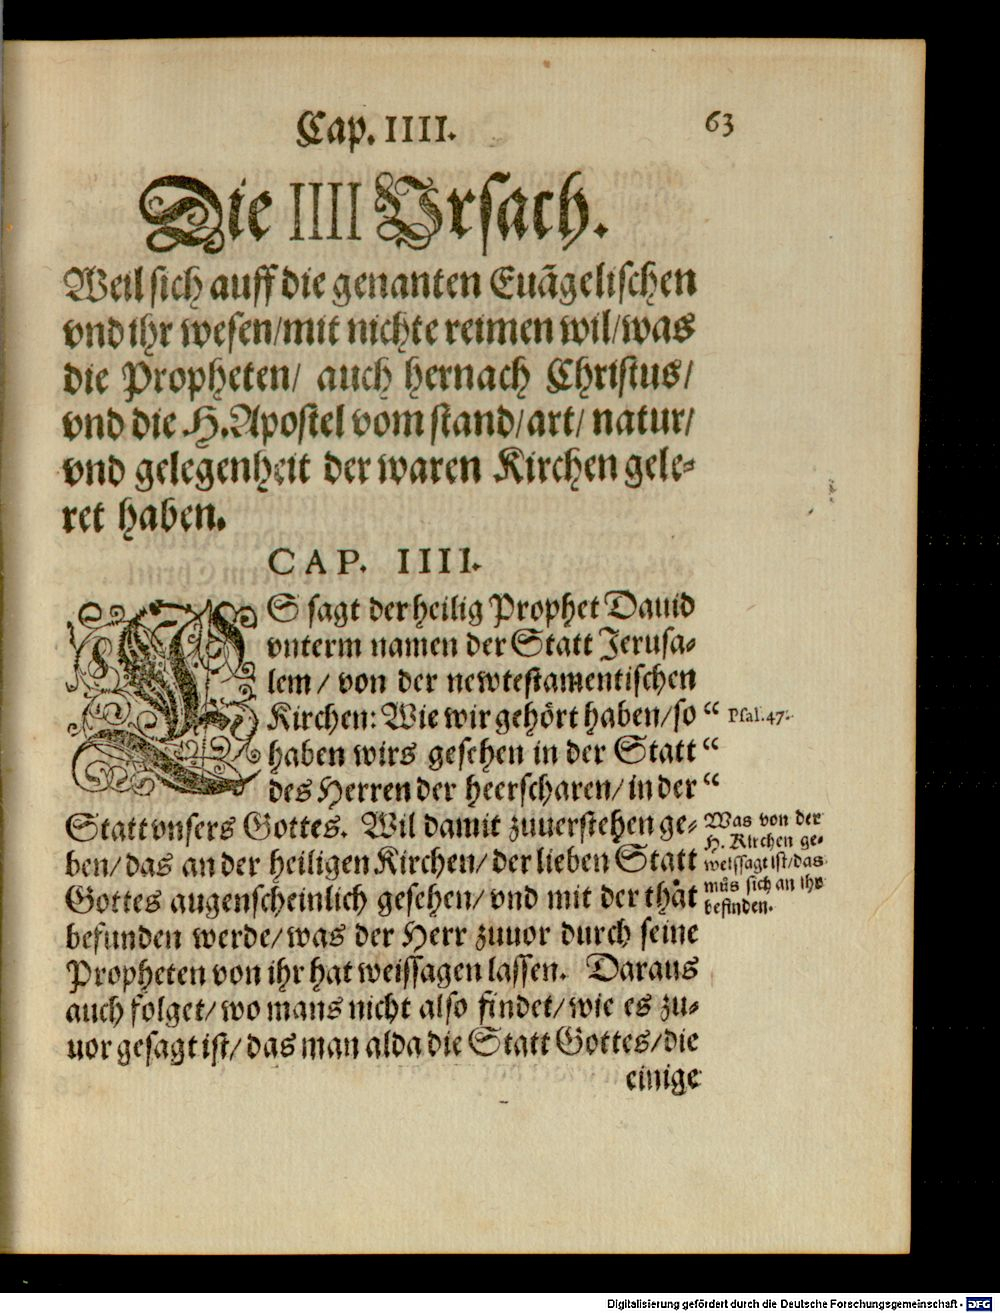 Cap. IIII. 63
Die IIII Vrsach.
Weil sich auff die genanten Euãgelischen
vnd ihr wesen/mit nichte reimen wil/was
die Propheten/ auch hernach Christus/
vnd die H. Apostel vom stand/art/ natur/
vnd gelegenheit der waren Kirchen gele-
ret haben.
CAP. IIII.
ES sagt der heilig Prophet Dauid
vnterm namen der Statt Jerusa-
lem / von der newtestamentischen
Kirchen: Wie wir gehört haben/so “ Psal.47.
haben wirs gesehen in der Statt “
des Herren der heerscharen/ in der “
Statt vnsers Gottes. Wil damit zuuerstehen ge-
ben/ das an der heiligen Kirchen/ der lieben Statt
Gottes augenscheinlich gesehen/ vnd mit der thåt
befunden werde/ was der Herr zuuor durch seine
Propheten von ihr hat weissagen lassen. Daraus
auch folget/ wo mans nicht also findet/ wie es zu-
uor gesagt ist/ das man alda die Statt Gottes/ die
einige
Was von der
H. Kirchen ge-
weissagt ist/das
můs sich an ihr
befinden.
Digitalisierung gefördert durch die Deutsche Forschungsgemeinschaft - DFG